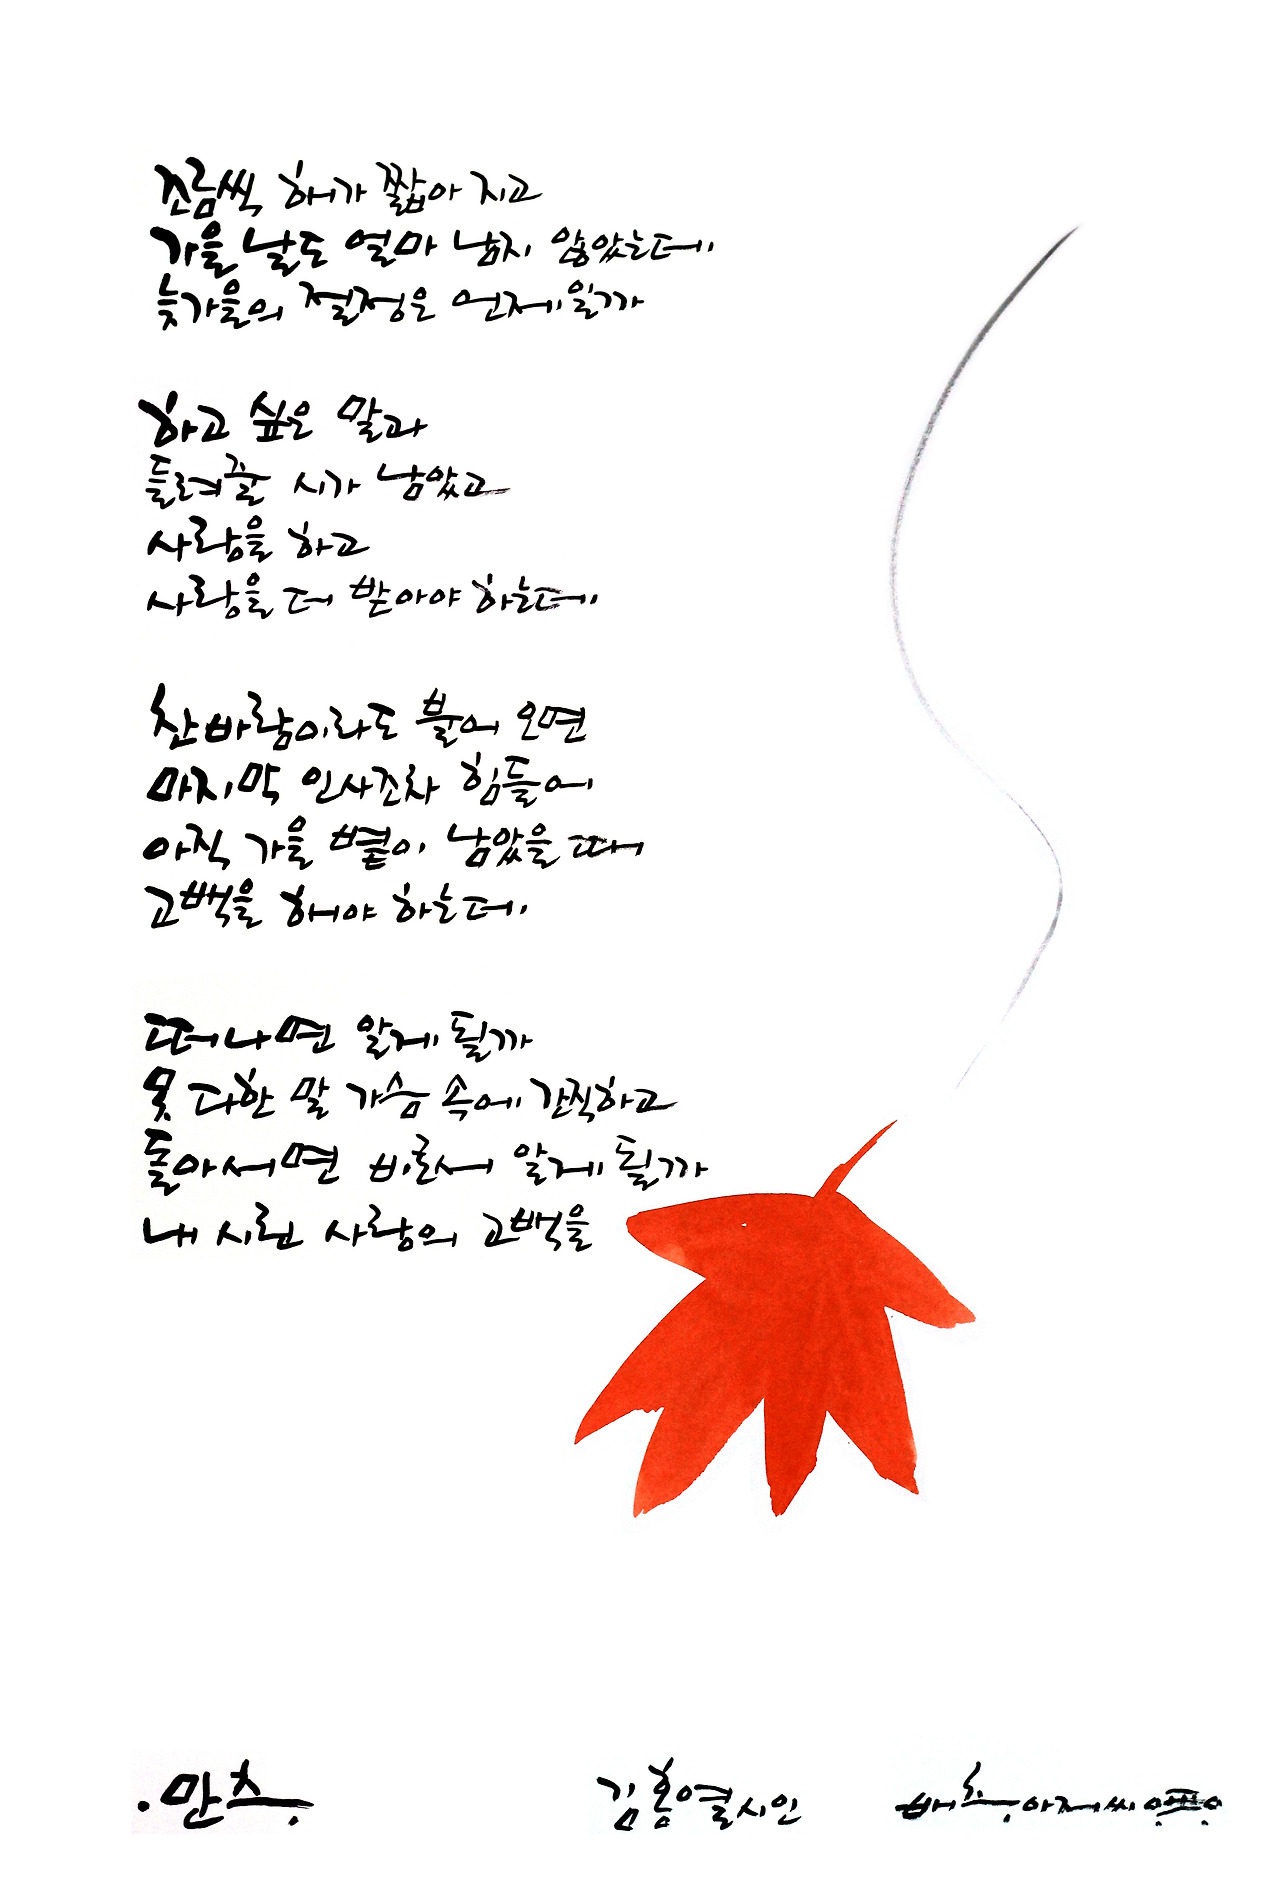 조금씩 해가 짧아 지고
가을 날도 얼마 남지 않았는데
늦가을의 절정은 언제일까
하고 싶은 말과
들려줄 시가 남았고
사랑을 하고
사랑을 더 받아야 하는데
찬바람이라도 불어 오면
마지막 인사조차 힘들어
아직 가을 볕이 남았을 때
고백을 해야 하는데
떠나면 알게 될까
못 다한 말 가슴 속에 간직하고
돌아서면 비로서 알게 될까
내 시린 사랑의 고백을
만추
김홍열시인
배추아저씨